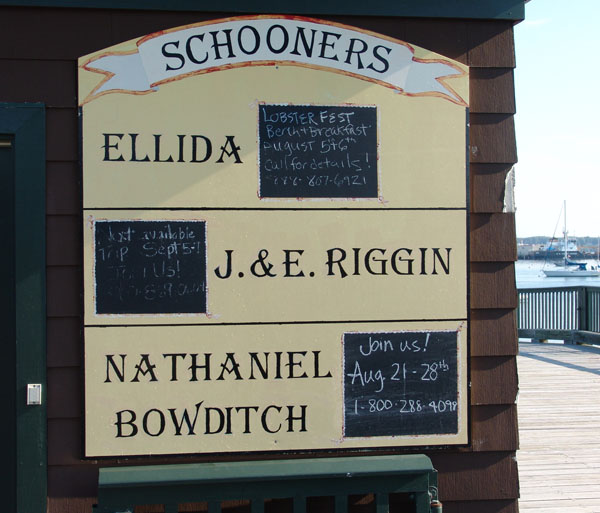 SCHOONERS
ELLIDA
LOBSTER FEST
Berth + Breakfast
August 5th+6th
Call for details!
888-807-6921
Just available
Trip Sept 5-7
Join Us!
J. & E. RIGGIN
NATHANIEL
BOWDITCH
Join us!
Aug 21-28th
1-800-288-4098